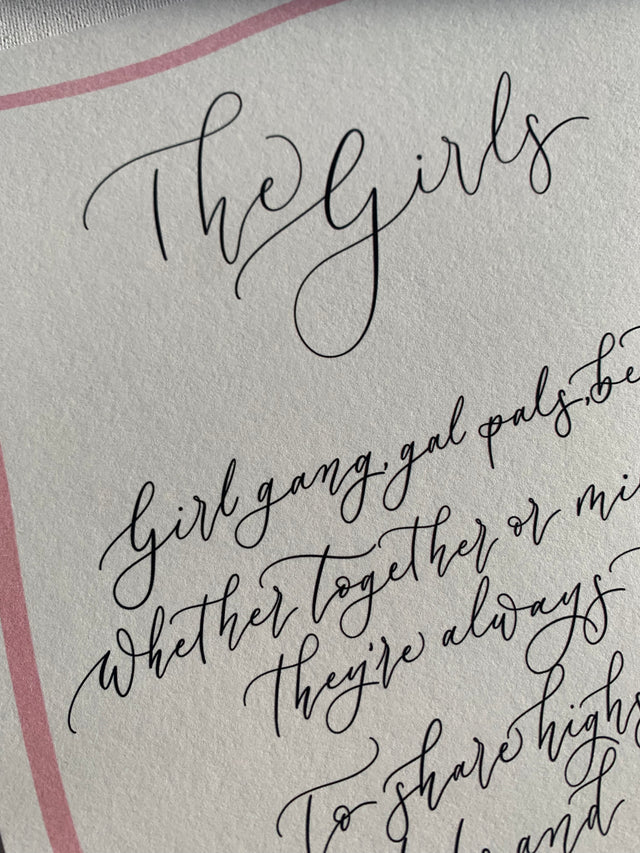 The Girls
Girl gang, gal pals, be
Whether together or mi
they're always
To share highs
and